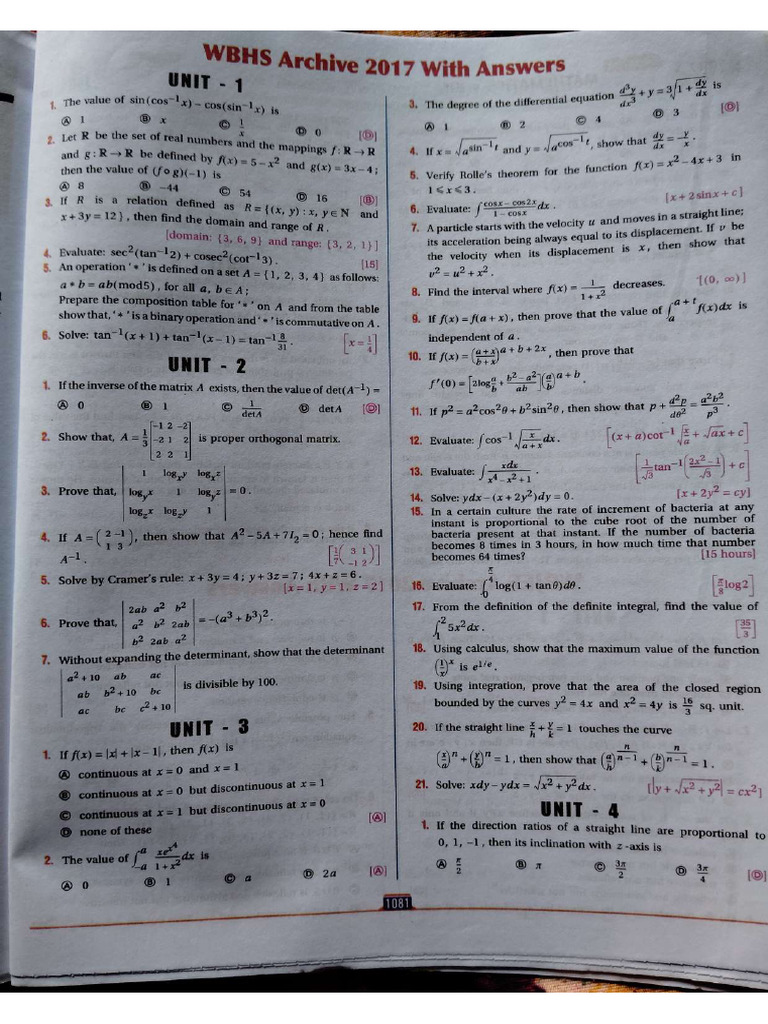 WBHS Archive 2017 With Answers
UNIT - 1
1. The value of sin(cos⁻¹x) − cos(sin⁻¹x) is
Ⓐ 1 Ⓑ x Ⓒ 1/x Ⓓ 0 [D]
2. Let R be the set of real numbers and the mappings f : R → R
and g : R → R be defined by f(x) = 5 − x² and g(x) = 3x − 4;
then the value of (f∘g)(−1) is
Ⓐ 8 Ⓑ −44 Ⓒ 54 Ⓓ 16 [B]
3. If R is a relation defined as R = {(x, y) : x, y ∈ N and
x + 3y = 12}, then find the domain and range of R.
[domain: {3, 6, 9} and range: {3, 2, 1}]
4. Evaluate: sec²(tan⁻¹2) + cosec²(cot⁻¹3). [15]
5. An operation '*' is defined on a set A = {1, 2, 3, 4} as follows:
a * b = ab(mod5), for all a, b ∈ A;
Prepare the composition table for '*' on A and from the table
show that, '*' is a binary operation and '*' is commutative on A.
6. Solve: tan⁻¹(x + 1) + tan⁻¹(x − 1) = tan⁻¹ 8/31. [x = 1/4]
UNIT - 2
1. If the inverse of the matrix A exists, then the value of det(A⁻¹) =
Ⓐ 0 Ⓑ 1 Ⓒ 1/detA Ⓓ detA [D]
2. Show that, A = 1/3 [−1 2 −2; −2 1 2; 2 2 1] is proper orthogonal matrix.
3. Prove that, |1 logₓy logₓz; log_y x 1 log_y z; log_z x log_z y 1| = 0.
4. If A = (2 −1; 1 3), then show that A² − 5A + 7I₂ = 0; hence find
A⁻¹. [1/7(3 1; −1 2)]
5. Solve by Cramer's rule: x + 3y = 4; y + 3z = 7; 4x + z = 6.
[x = 1, y = 1, z = 2]
6. Prove that, |2ab a² b²; a² b² 2ab; b² 2ab a²| = −(a³ + b³)².
7. Without expanding the determinant, show that the determinant
|a² + 10 ab ac; ab b² + 10 bc; ac bc c² + 10| is divisible by 100.
UNIT - 3
1. If f(x) = |x| + |x − 1|, then f(x) is
Ⓐ continuous at x = 0 and x = 1
Ⓑ continuous at x = 0 but discontinuous at x = 1
Ⓒ continuous at x = 1 but discontinuous at x = 0
Ⓓ none of these [A]
2. The value of ∫₋ₐᵃ xe^(x⁴)/(1 + x²) dx is
Ⓐ 0 Ⓑ 1 Ⓒ a Ⓓ 2a [A]
3. The degree of the differential equation d³y/dx³ + y = 3√(1 + dy/dx) is
Ⓐ 1 Ⓑ 2 Ⓒ 4 Ⓓ 3 [D]
4. If x = √(a^(sin⁻¹t)) and y = √(a^(cos⁻¹t)), show that dy/dx = −y/x.
5. Verify Rolle's theorem for the function f(x) = x² − 4x + 3 in
1 ⩽ x ⩽ 3.
6. Evaluate: ∫ (cosx − cos2x)/(1 − cosx) dx. [x + 2sinx + c]
7. A particle starts with the velocity u and moves in a straight line;
its acceleration being always equal to its displacement. If v be
the velocity when its displacement is x, then show that
v² = u² + x².
8. Find the interval where f(x) = 1/(1 + x²) decreases. [(0, ∞)]
9. If f(x) = f(a + x), then prove that the value of ∫ₐ^(a + t) f(x)dx is
independent of a.
10. If f(x) = ((a + x)/(b + x))^(a + b + 2x), then prove that
f'(0) = [2log a/b + (b² − a²)/ab](a/b)^(a + b).
11. If p² = a²cos²θ + b²sin²θ, then show that p + d²p/dθ² = a²b²/p³.
12. Evaluate: ∫cos⁻¹√(x/(a + x)) dx. [(x + a)cot⁻¹√(x/a) + √(ax) + c]
13. Evaluate: ∫ xdx/(x⁴ − x² + 1). [1/√3 tan⁻¹((2x² − 1)/√3) + c]
14. Solve: ydx − (x + 2y²)dy = 0. [x + 2y² = cy]
15. In a certain culture the rate of increment of bacteria at any
instant is proportional to the cube root of the number of
bacteria present at that instant. If the number of bacteria
becomes 8 times in 3 hours, in how much time that number
becomes 64 times? [15 hours]
16. Evaluate: ∫₀^(π/4) log(1 + tanθ)dθ. [π/8 log2]
17. From the definition of the definite integral, find the value of
∫₁² 5x²dx. [35/3]
18. Using calculus, show that the maximum value of the function
(1/x)ˣ is e^(1/e).
19. Using integration, prove that the area of the closed region
bounded by the curves y² = 4x and x² = 4y is 16/3 sq. unit.
20. If the straight line x/h + y/k = 1 touches the curve
(x/a)ⁿ + (y/h)ⁿ = 1, then show that (a/h)^(n/(n−1)) + (b/k)^(n/(n−1)) = 1.
21. Solve: xdy − ydx = √(x² + y²)dx. [|y + √(x² + y²)| = cx²]
UNIT - 4
1. If the direction ratios of a straight line are proportional to
0, 1, −1, then its inclination with z-axis is
Ⓐ π/2 Ⓑ π Ⓒ 3π/2 Ⓓ 3π/4 [D]
1081